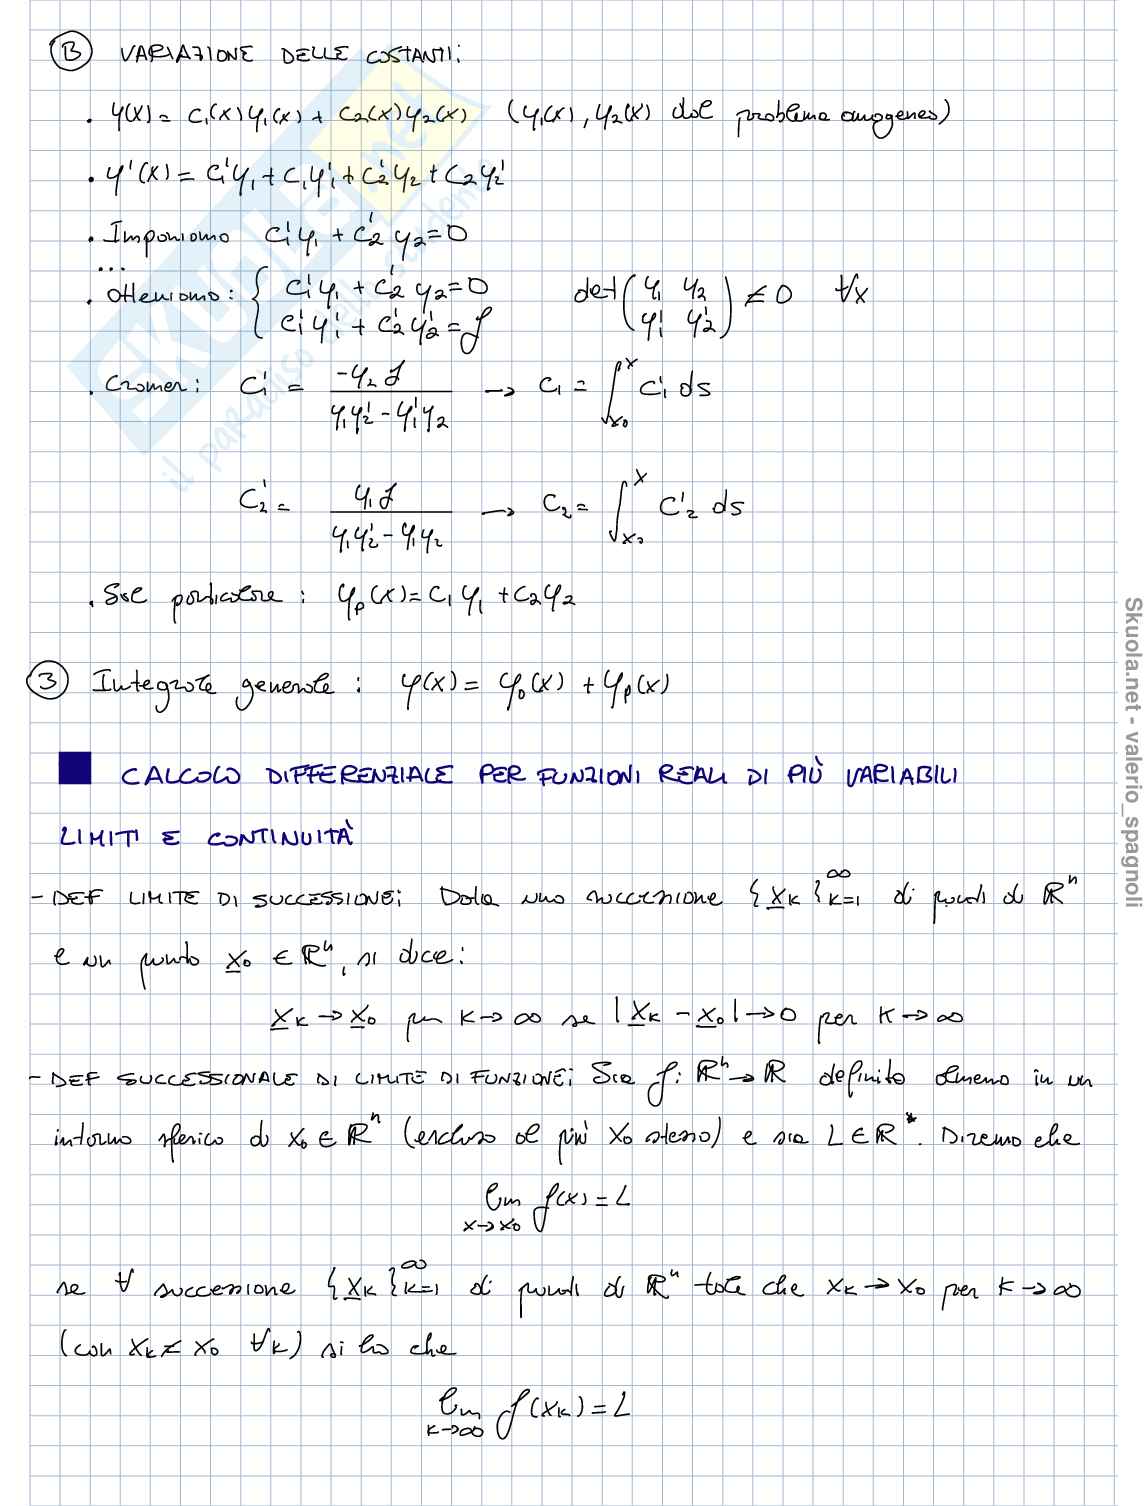 Ⓑ VARIAZIONE DELLE COSTANTI:
• y(x) = c₁(x)y₁(x) + c₂(x)y₂(x) (y₁(x), y₂(x) del problema omogeneo)
• y'(x) = c₁'y₁ + c₁y₁' + c₂'y₂ + c₂y₂'
• Imponiamo c₁'y₁ + c₂'y₂ = 0
...
• Otteniamo: { c₁'y₁ + c₂'y₂ = 0 det(y₁ y₂ ≠ 0 ∀x
c₁'y₁' + c₂'y₂' = f y₁' y₂')
• Cramer: c₁' = -y₂f / (y₁y₂' - y₁'y₂) → c₁ = ∫_{x₀}^{x} c₁' ds
c₂' = y₁f / (y₁y₂' - y₁y₂) → c₂ = ∫_{x₀}^{x} c₂' ds
• Sol particolare: yₚ(x) = c₁y₁ + c₂y₂
③ Integrale generale: y(x) = y₀(x) + yₚ(x)
CALCOLO DIFFERENZIALE PER FUNZIONI REALI DI PIÙ VARIABILI
LIMITI E CONTINUITÀ
- DEF LIMITE DI SUCCESSIONE: Data una successione {x̲ₖ}_{k=1}^{∞} di punti di ℝⁿ
e un punto x̲₀ ∈ ℝⁿ, si dice:
x̲ₖ → x̲₀ per k → ∞ se |x̲ₖ - x̲₀| → 0 per k → ∞
- DEF SUCCESSIONALE DI LIMITE DI FUNZIONE: Sia f: ℝⁿ → ℝ definita almeno in un
intorno sferico di x₀ ∈ ℝⁿ (escluso al più x₀ stesso) e sia L ∈ ℝ*. Diremo che
lim_{x→x₀} f(x) = L
se ∀ successione {x̲ₖ}_{k=1}^{∞} di punti di ℝⁿ tale che xₖ → x₀ per k → ∞
(con xₖ ≠ x₀ ∀k) si ha che
lim_{k→∞} f(xₖ) = L
SKUOLA.net
il paradiso dello studente
Skuola.net - valerio_spagnoli